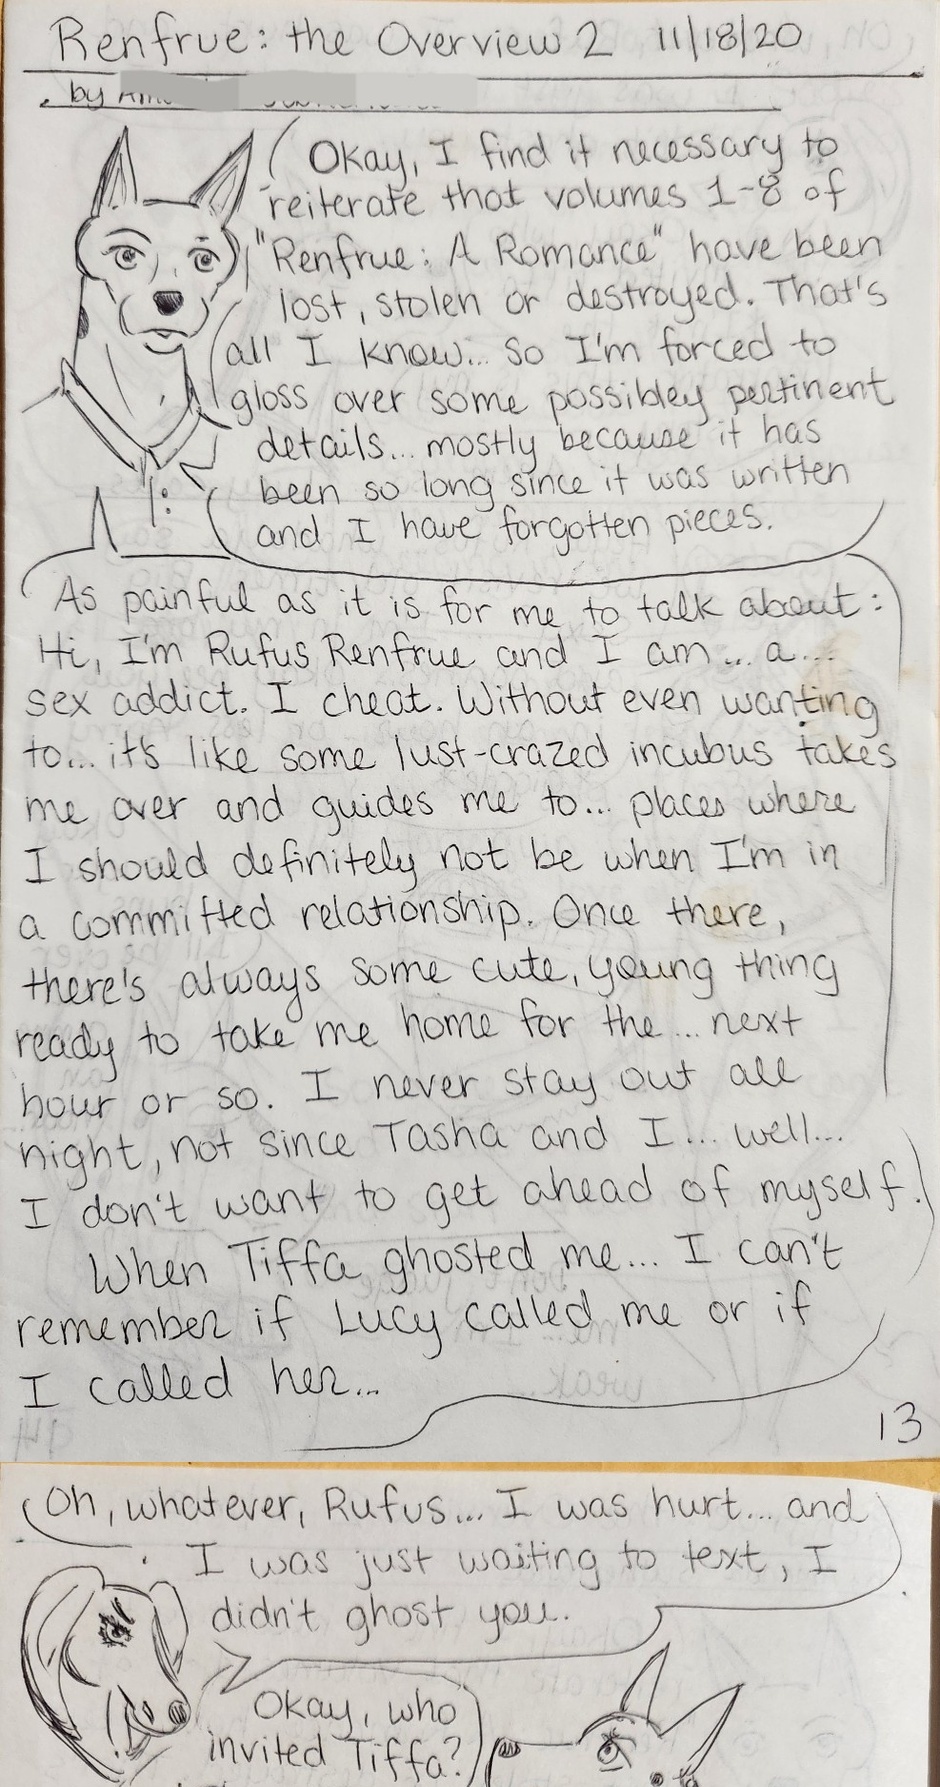 Renfrue: the Overview 2 11/18/20
by
Okay, I find it necessary to
reiterate that volumes 1-8 of
"Renfrue: A Romance" have been
lost, stolen or destroyed. That's
all I know... so I'm forced to
gloss over some possibley pertinent
details... mostly because it has
been so long since it was written
and I have forgotten pieces.
As painful as it is for me to talk about:
Hi, I'm Rufus Renfrue and I am... a...
sex addict. I cheat. Without even wanting
to... it's like some lust-crazed incubus takes
me over and guides me to... places where
I should definitely not be when I'm in
a committed relationship. Once there,
there's always some cute, young thing
ready to take me home for the... next
hour or so. I never stay out all
night, not since Tasha and I... well...
I don't want to get ahead of myself.
When Tiffa ghosted me... I can't
remember if Lucy called me or if
I called her...
13
Oh, whatever, Rufus... I was hurt... and
I was just waiting to text, I
didn't ghost you.
Okay, who
invited Tiffa?